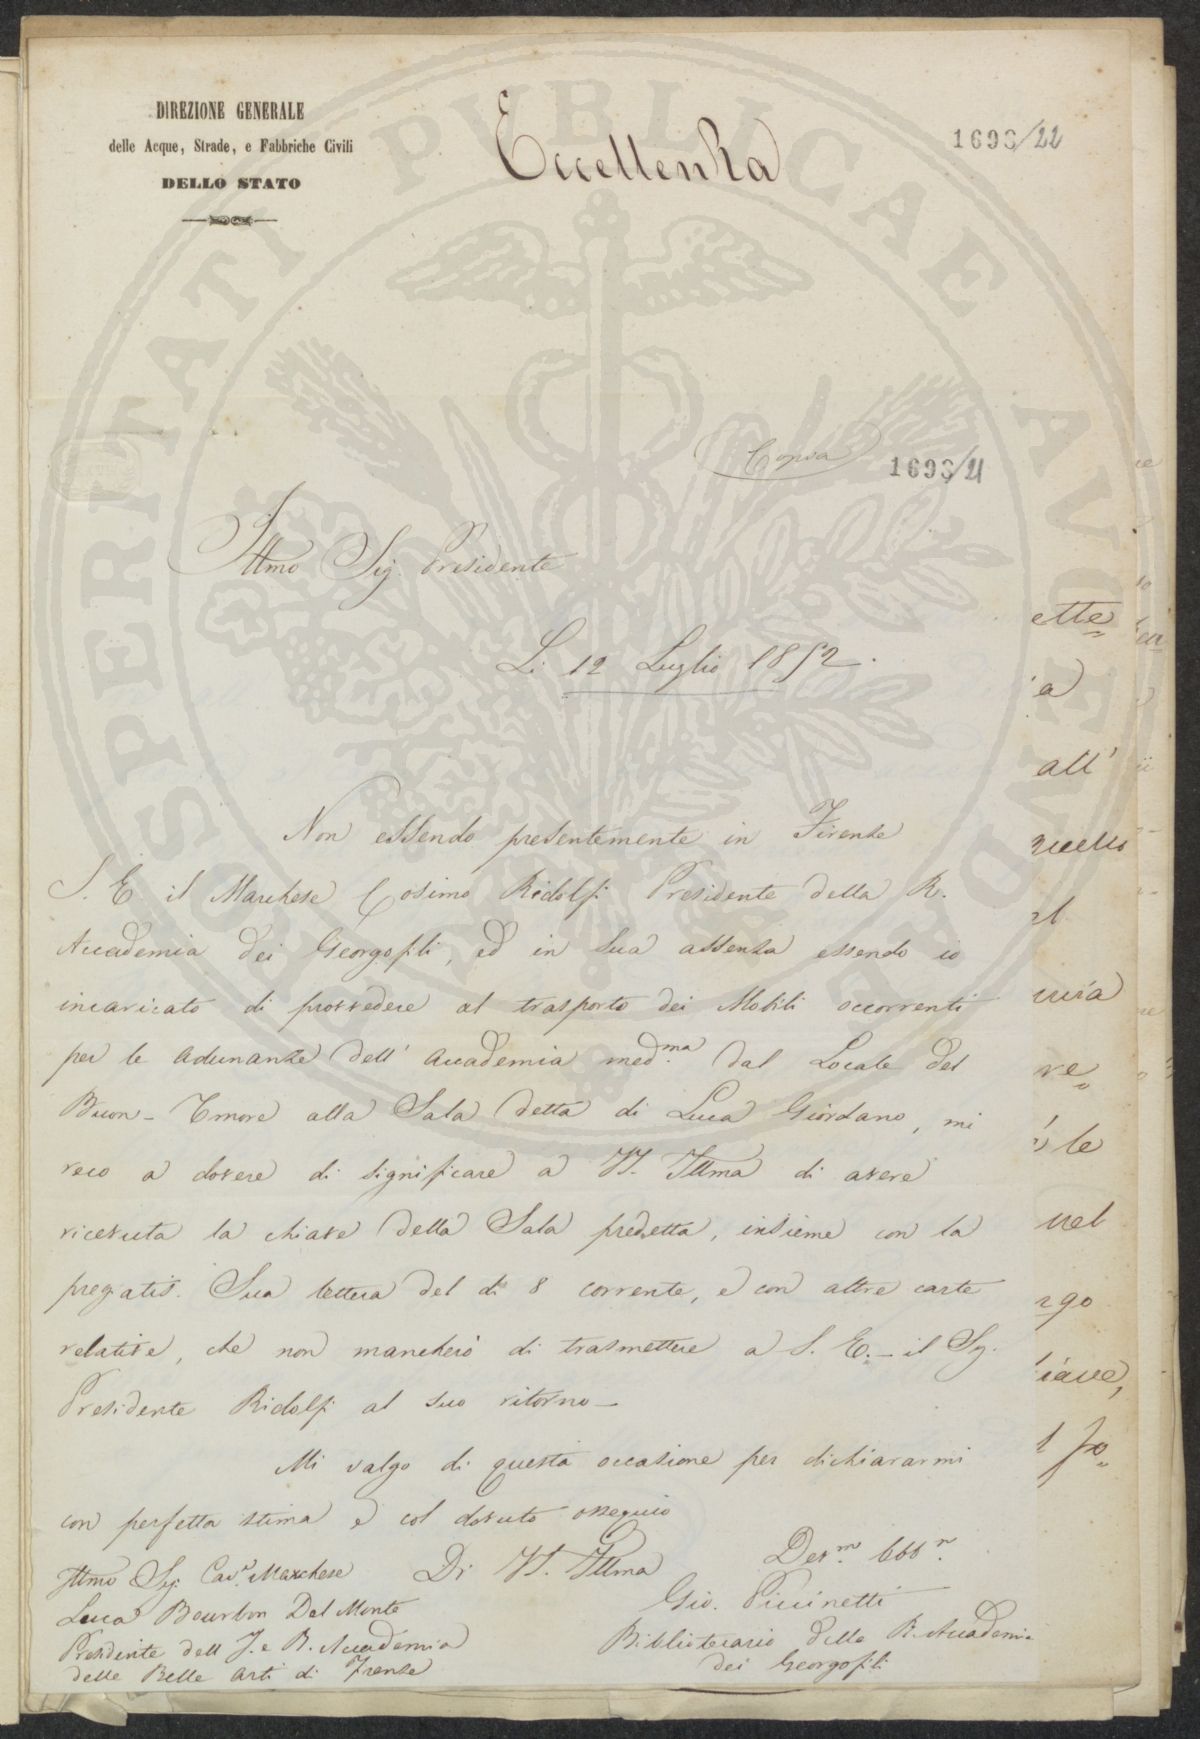 DIREZIONE GENERALE
delle Acque, Strade, e Fabbriche Civili
DELLO STATO
Eccellenza
1693/22
Copia
1693/21
Illmo Sig. Presidente
Li 12 Luglio 1852.
Non essendo presentemente in Firenze
S. E. il Marchese Cosimo Ridolfi Presidente della R.
Accademia dei Georgofili, ed in sua assenza essendo io
incaricato di provvedere al trasporto dei Mobili occorrenti
per le adunanze dell' Accademia med.ma dal Locale del
Buon-Umore alla Sala detta di Luca Giordano, mi
reco a dovere di significare a VS. Illma di avere
ricevuta la chiave della Sala predetta, insieme con la
pregiatis. Sua lettera del dì 8 corrente, e con altre carte
relative, che non mancherò di trasmettere a S. E. il Sig.
Presidente Ridolfi al suo ritorno—
Mi valgo di questa occasione per dichiararmi
con perfetta stima e col dovuto ossequio
Di VS. Illma
Dev.mo Obb.o
Gio. Piccinetti
Bibliotecario della R. Accademia
dei Georgofili
Illmo Sig. Cav.e Marchese
Luca Bourbon Del Monte
Presidente dell I. e R. Accademia
delle Belle Arti di Firenze
ette
a
all'
rl
ve
le
nel
rgo
iave,
PROSPERITATI PVBLICAE AVGENDAE